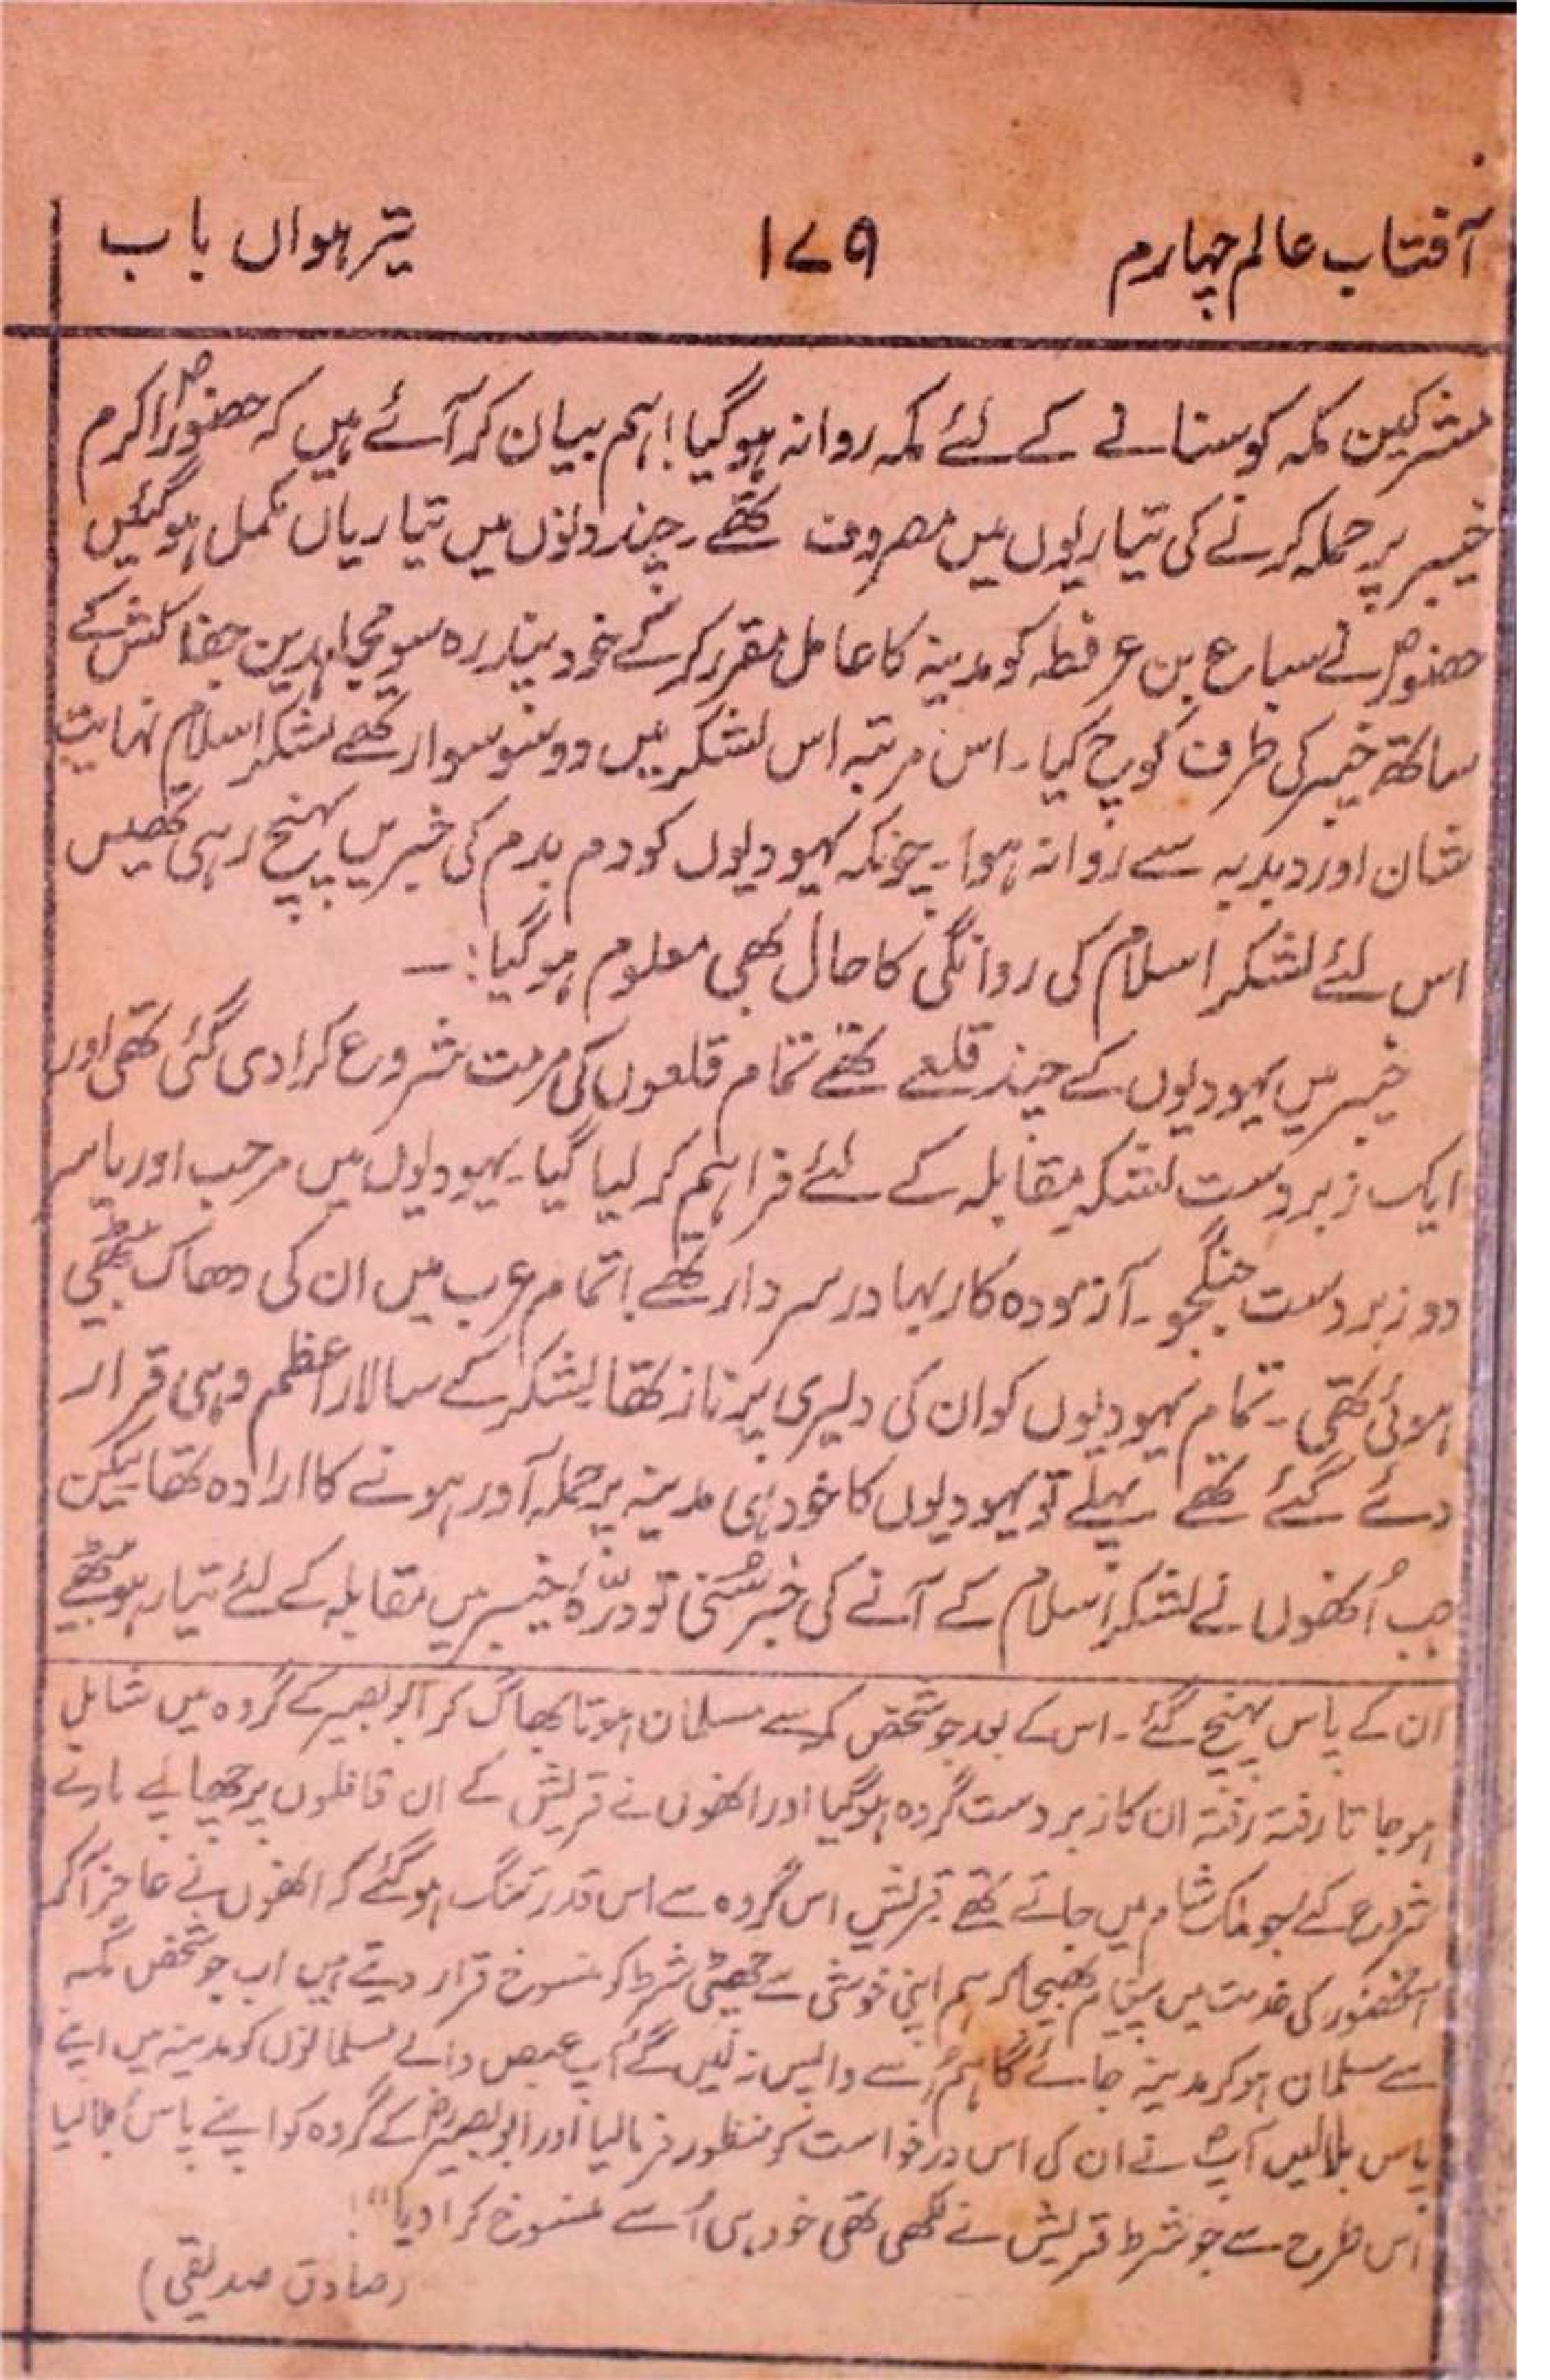 آفتاب عالم چہارم ۱۷۹ تیرہواں باب
مشرکین مکہ کو سنانے کے لئے مکہ روانہ ہوگیا! ہم بیان کر آئے ہیں کہ حضورؐ اکرم
خیبر پر حملہ کرنے کی تیاریوں میں مصروف تھے۔ چند دنوں میں تیاریاں مکمل ہوگئیں
حضورؐ نے سباع بن عرفطہ کو مدینہ کا عامل مقرر کر کے خود پندرہ سو مجاہدین جفاکش کے
ساتھ خیبر کی طرف کوچ کیا۔ اس مرتبہ اس لشکر میں دو سو سوار تھے لشکر اسلام نہایت
شان اور دبدبہ سے روانہ ہوا۔ چونکہ یہودیوں کو دم بدم کی خبریں پہنچ رہی تھیں
اس لئے لشکر اسلام کی روانگی کا حال بھی معلوم ہوگیا:۔
خیبر میں یہودیوں کے چند قلعے تھے تمام قلعوں کی مرمت شروع کرادی گئی تھی اور
ایک زبردست لشکر مقابلہ کے لئے فراہم کر لیا گیا۔ یہودیوں میں مرحب اور یاسر
دو زبردست جنگجو۔ آزمودہ کار بہادر سردار تھے! تمام عرب میں ان کی دھاک بیٹھی
ہوئی تھی۔ تمام یہودیوں کو ان کی دلیری پر ناز تھا لشکر کے سالار اعظم وہی قرار
دئے گئے تھے پہلے تو یہودیوں کا خود ہی مدینہ پر حملہ آور ہونے کا ارادہ تھا لیکن
جب اُنھوں نے لشکر اسلام کے آنے کی خبر سُنی تو درّہ خیبر میں مقابلہ کے لئے تیار ہو بیٹھے
ان کے پاس پہنچ گئے۔ اس کے بعد جو شخص مکہ سے مسلمان ہوتا بھاگ کر ابو بصیر کے گروہ میں شامل
ہوجاتا رفتہ رفتہ ان کا زبردست گروہ ہوگیا اور انھوں نے قریش کے ان قافلوں پر چھاپے مارنے
شروع کئے جو ملک شام میں جاتے تھے قریش اس گروہ سے اس قدر تنگ ہوگئے کہ انھوں نے عاجز آکر
آنحضورؐ کی خدمت میں پیغام بھیجا کہ ہم اپنی خوشی سے چھٹی شرط کو منسوخ قرار دیتے ہیں اب جو شخص مکہ
سے مسلمان ہو کر مدینہ جائے گا ہم اُسے واپس نہ لیں گے آپؐ عیص والے مسلمانوں کو مدینہ میں اپنے
پاس بلالیں آپؐ نے ان کی اس درخواست کو منظور فرمالیا اور ابو بصیرؓ کے گروہ کو اپنے پاس بلالیا
اس طرح سے جو شرط قریش نے لکھی تھی خود ہی اُسے منسوخ کرادیا"!
(صادق صدیقی)